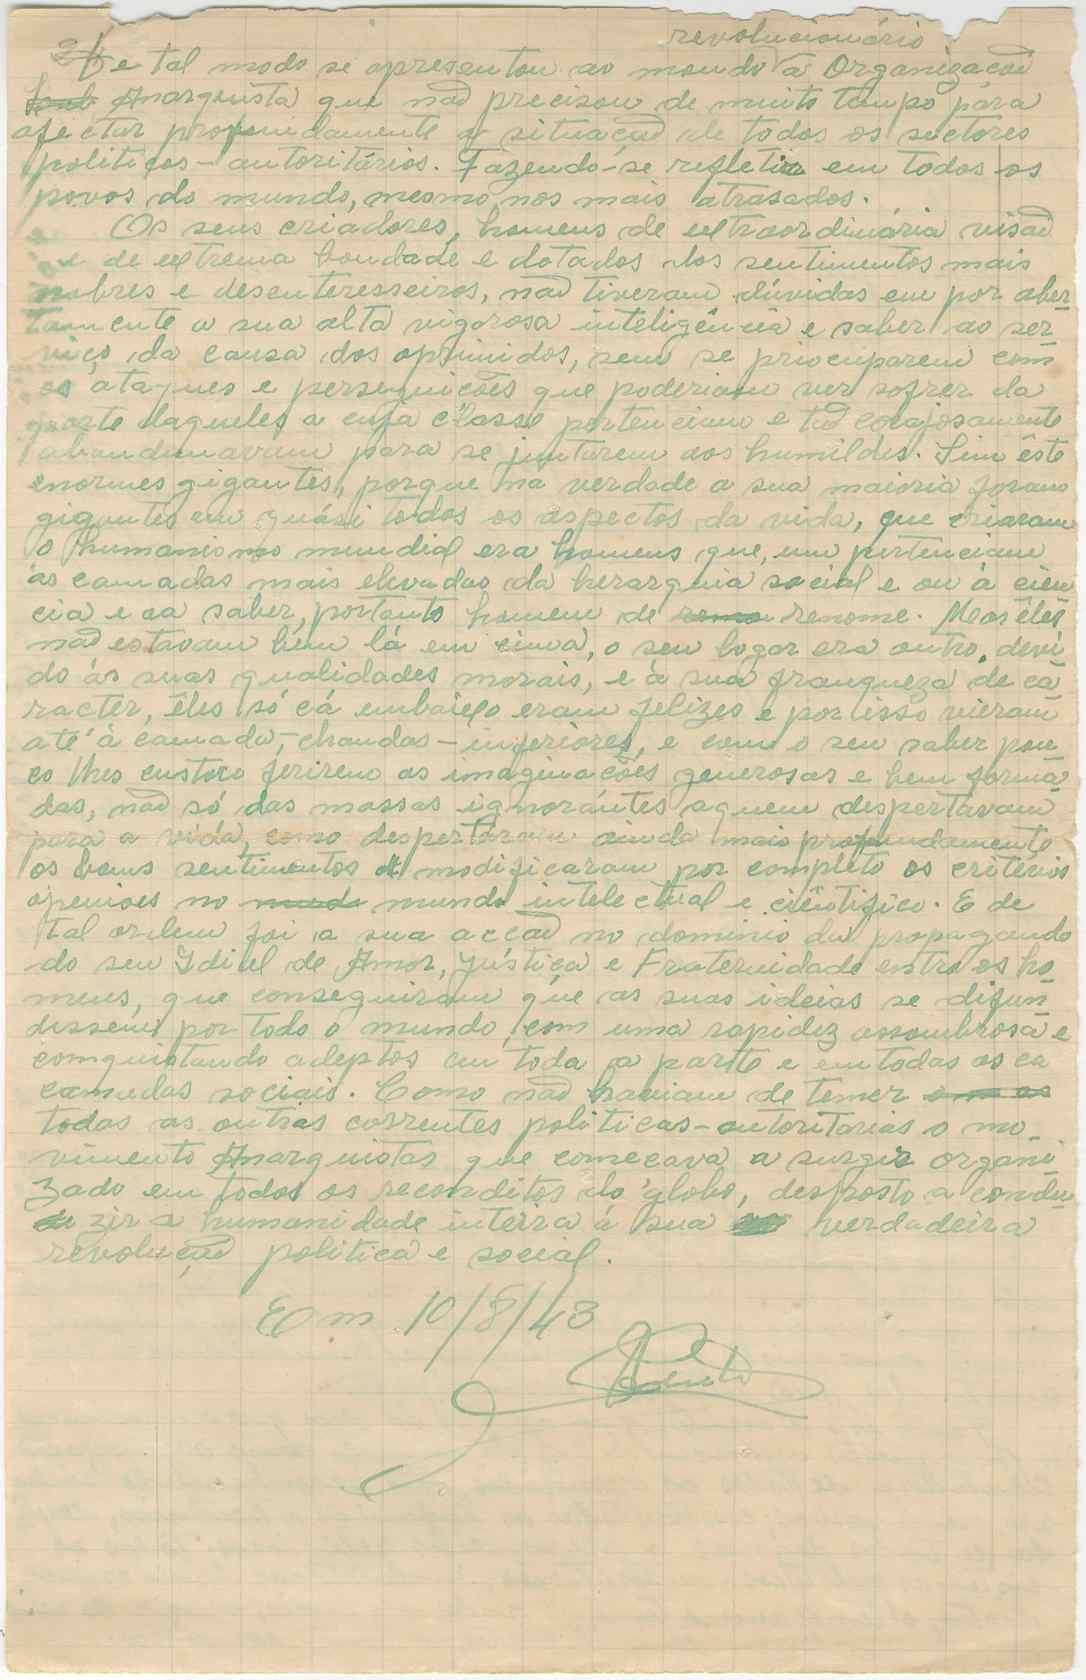 revolucionário
2/ De tal modo se apresentou ao mundo a Organização
Anarquista que não precisou de muito tempo para
afectar profundamente a situação de todos os sectores
politicos-autoritários. Fazendo-se refletir em todos os
povos do mundo, mesmo nos mais atrasados.
Os seus criadores, homens de extraordinária visão
e de extrema bondade e dotados dos sentimentos mais
nobres e desenteresseiros, não tiveram dúvidas em por aber-
tamente a sua alta vigorosa inteligência e saber ao ser-
viço da causa dos oprimidos, sem se priocuparem com
os ataques e perseguições que poderiam vir sofrer da
parte daqueles a cuja classe pertenciam e tão corajosamente
abandonavam para se juntarem aos humildes. Sim êste
enormes gigantes, porque na verdade a sua maioria foram
gigantes em quási todos os aspectos da vida, que criaram
o humanismo mundial era homens que, um pertenciam
ás camadas mais elevadas da herarquia social e ou á ciên
cia e ao saber, portanto homem de renome. Mas êles
não estavam bem lá em cima, o seu logar era outro, devi
do ás suas qualidades morais, e á sua franqueza de ca
racter, êles só cá embaixo eram felizes e por isso vieram
até á camada,-chandas-inferiores, e com o seu saber pou
co lhes custoro ferirem as imaginações generosas e bem forma
das, não só das massas ignorántes aquem despertavam
para a vida, como despertaram ainda mais profundamente
os bons sentimentos e modificaram por completo os critérios
openiões no mundo intelectual e ciêntifico. E de
tal ordem foi a sua acção no dominio da propaganda
do seu Idial de Amor, Jústiça e Fraternidade entre os ho
mens, que conseguiram que as suas ideias se difun
dissem por todo o mundo, com uma rapidez assombrosa e
comquistando adeptos em toda a parte e em todas as ca
camadas sociais. Como não haviam de temer
todas as outras correntes politicas-autoritarias o mo-
vimento Anarquistas que comecava a surgir organi
zado em todos os reconditos do globo, desposto a condu-
zir a humanidade inteira á sua verdadeira
revolução politica e social.
Em 10/8/43